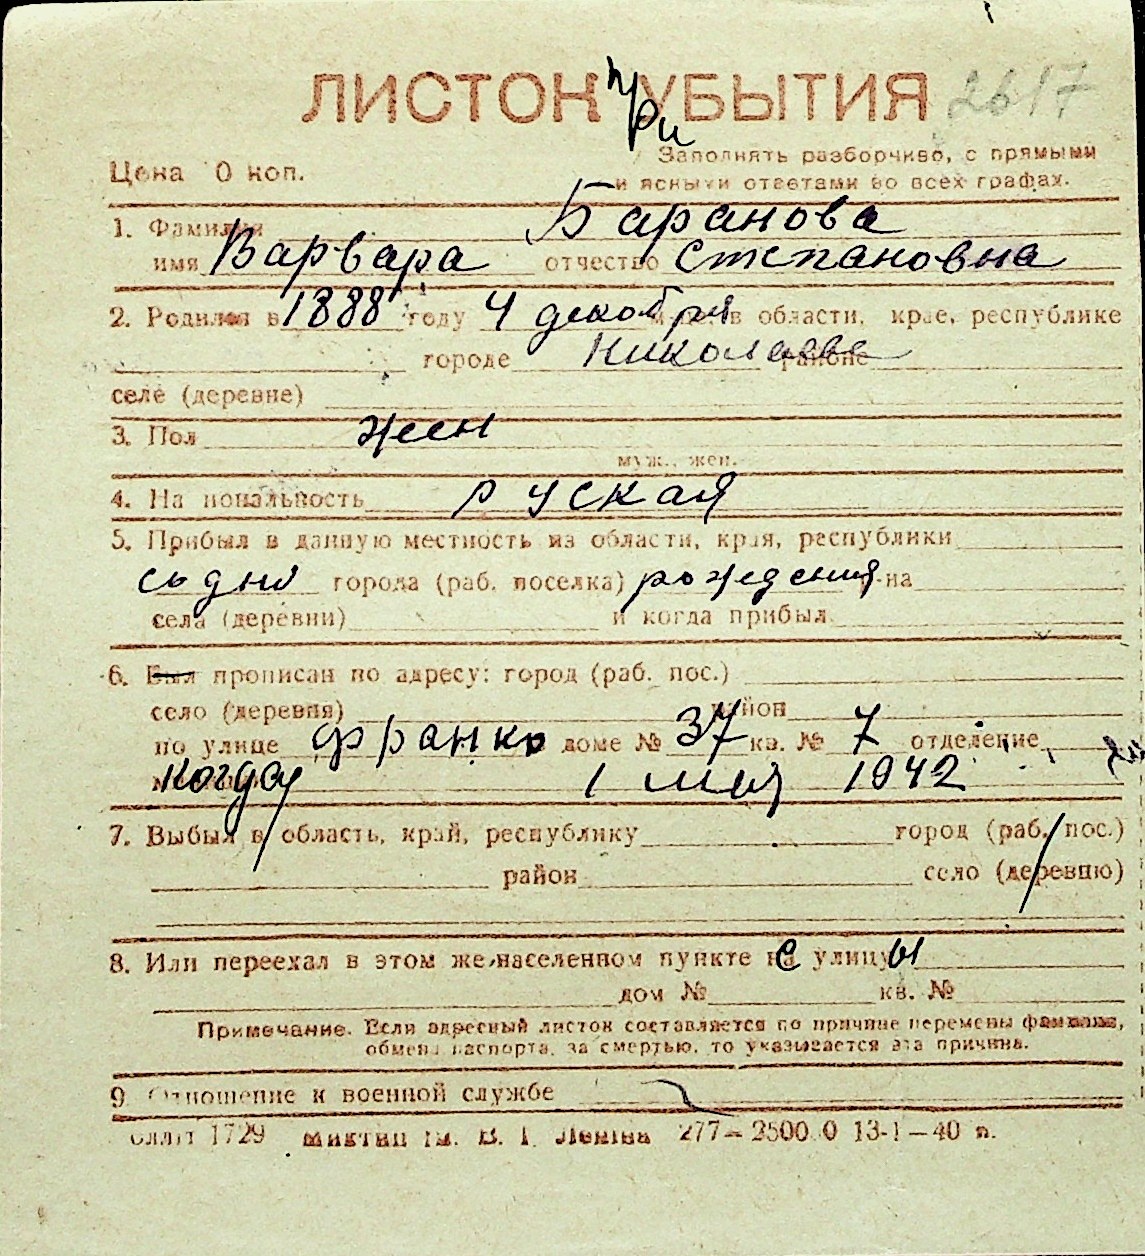 ЛИСТОК УБЫТИЯ 2617
при
Цена 0 коп.
Заполнять разборчиво, с прямыми
и ясными ответами во всех графах.
1. Фамилия Баранова
имя Варвара отчество Степановна
2. Родился в 1888 году 4 декобря в области, крае, республике
городе Николаеве районе
селе (деревне)
3. Пол жен
муж., жен.
4. Национальность руская
5. Прибыл в данную местность из области, края, республики
со дня города (раб. поселка) рождения р-на
села (деревни) и когда прибыл
6. Был прописан по адресу: город (раб. пос.)
село (деревня) район
по улице Франко доме № 37 кв. № 7 отделение
Когда 1 мая 1942
7. Выбыл в область, край, республику город (раб. пос.)
район село (деревню)
8. Или переехал в этом же населенном пункте с улицы
дом № кв. №
Примечание. Если адресный листок составляется по причине перемены фамилии,
обмена паспорта, за смертью, то указывается эта причина.
9. Отношение к военной службе
1729 ім. В. І. Леніна 277—2500 0 13-1—40 п.